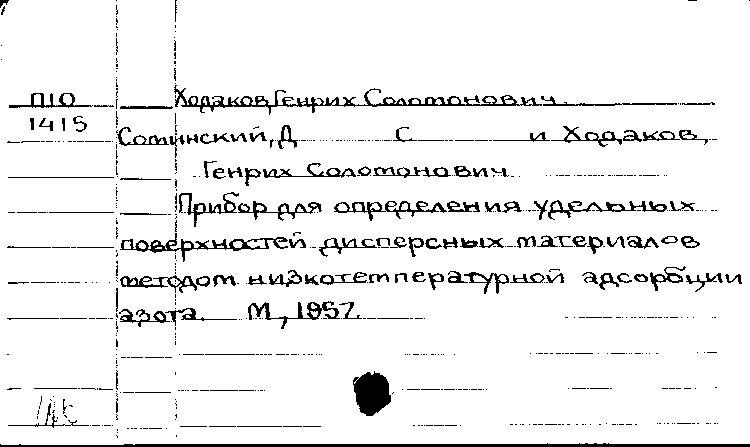 П10 Ходаков, Генрих Соломонович.
1415
Соминский, Д С и Ходаков,
Генрих Соломонович
Прибор для определения удельных
поверхностей дисперсных материалов
методом низкотемпературной адсорбции
азота. М, 1957.